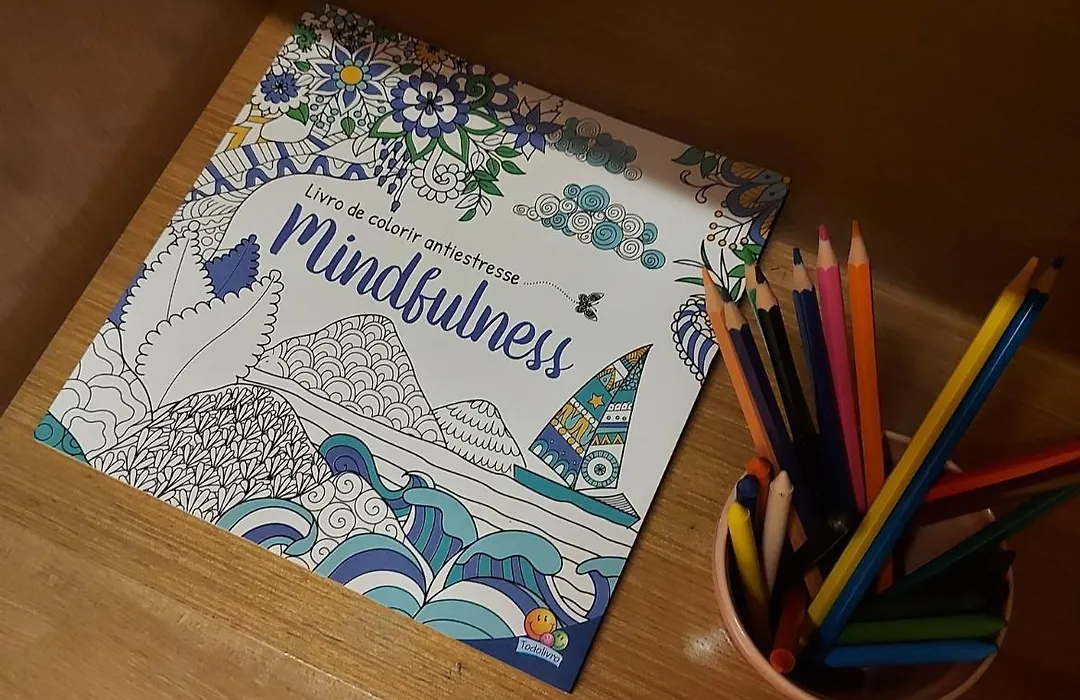 Livro de colorir antiestresse
Mindfulness
Todolivro